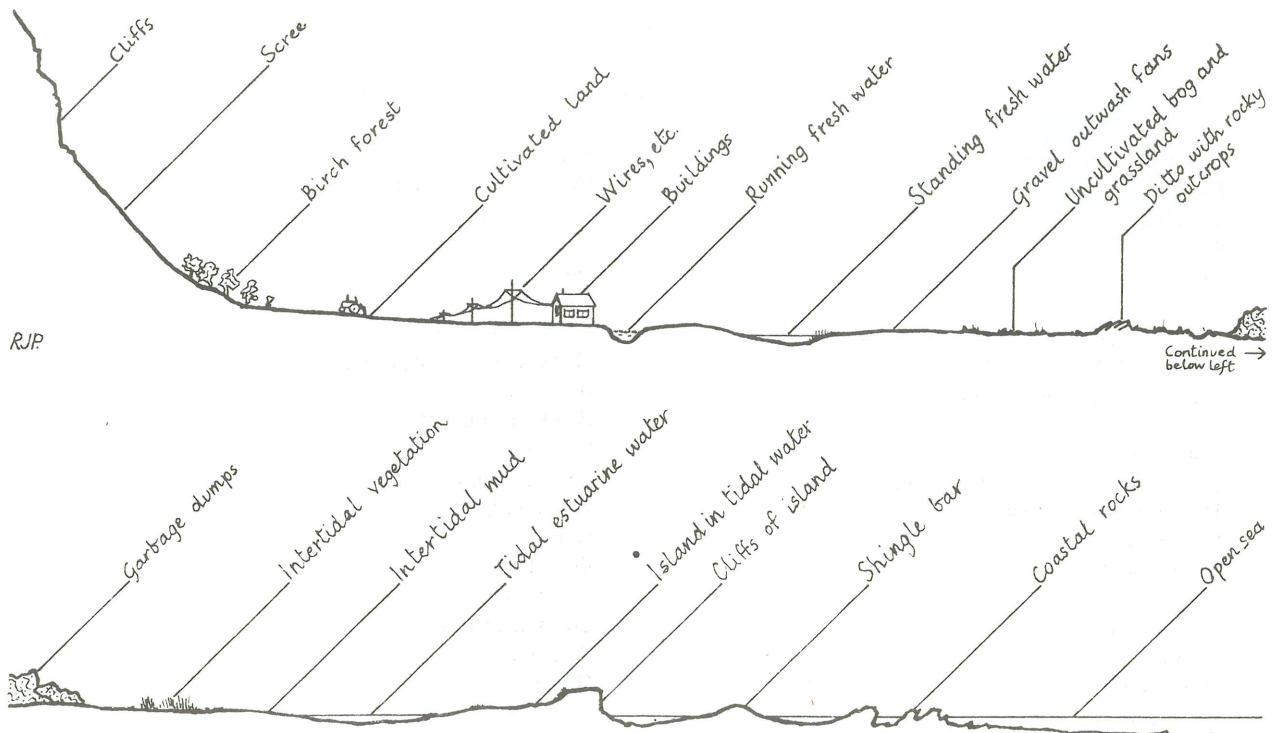 Cliffs
Scree
Birch forest
Cultivated land
Wires, etc.
Buildings
Running fresh water
Standing fresh water
Gravel outwash fans
Uncultivated bog and
grassland
Ditto with rocky
outcrops
RJP.
Continued →
below left
Garbage dumps
Intertidal vegetation
Intertidal mud
Tidal estuarine water
Island in tidal water
Cliffs of island
Shingle bar
Coastal rocks
Open sea